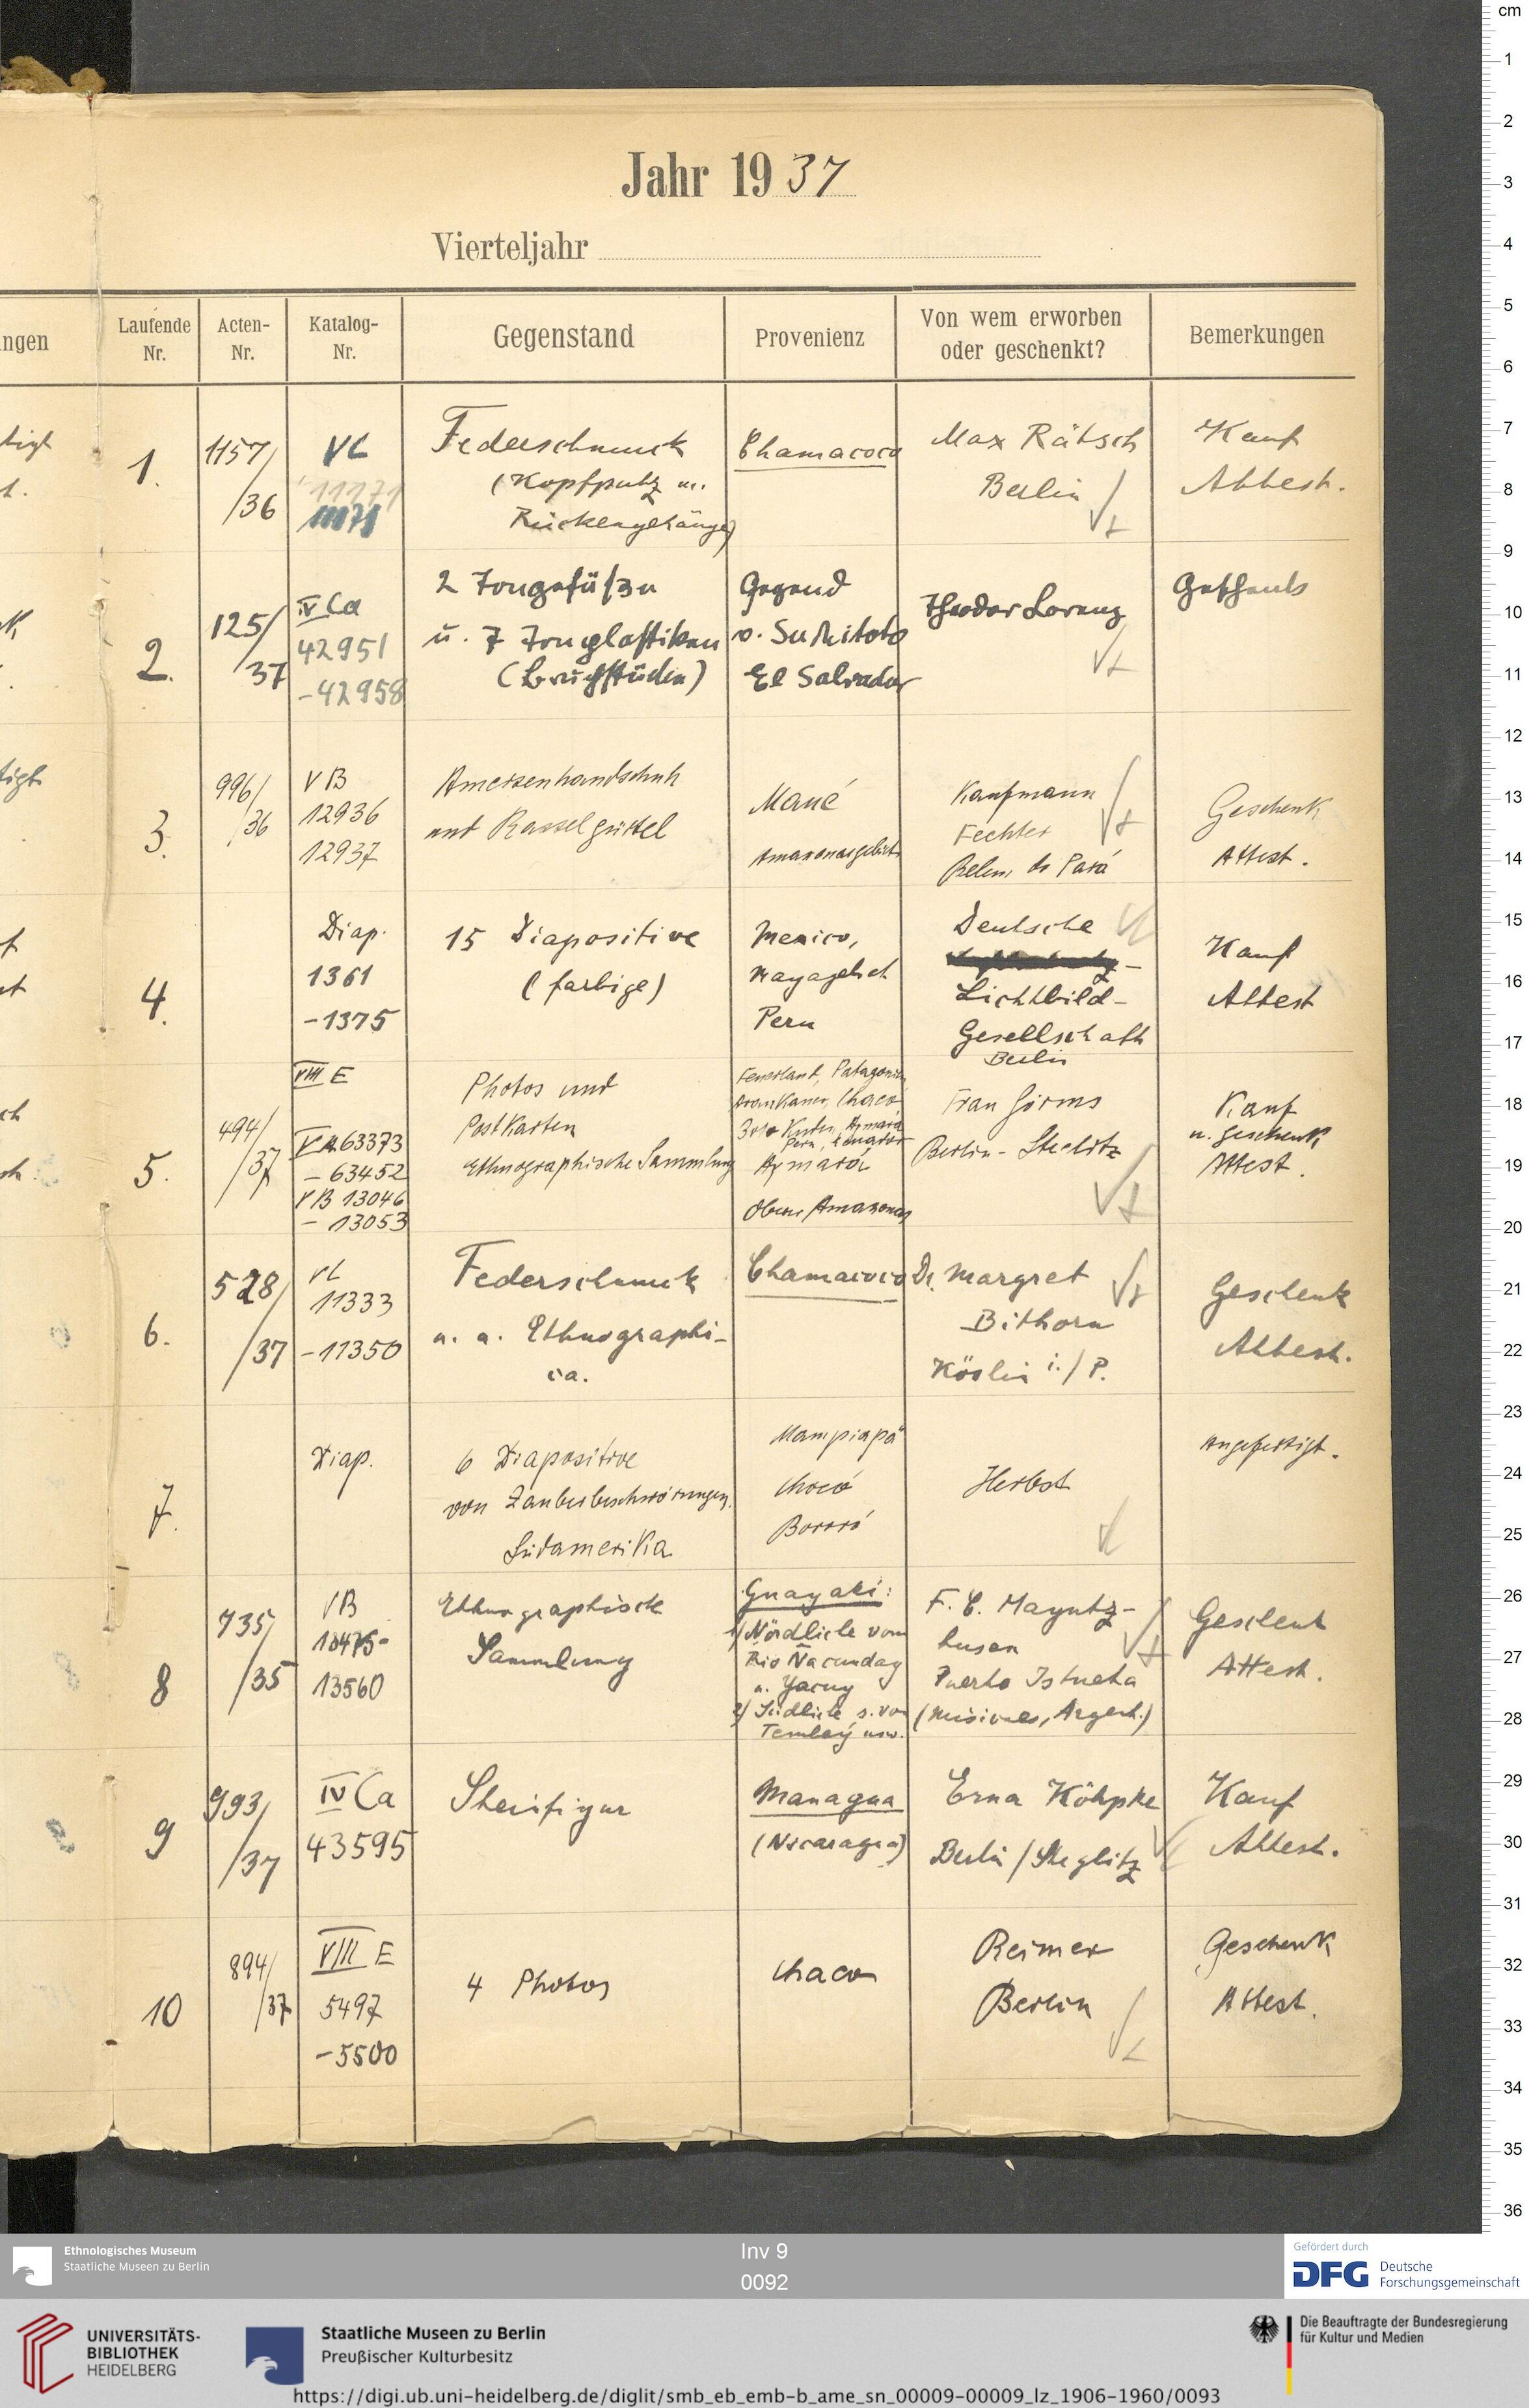 Jahr 1937
Vierteljahr
ngen
Laufende Nr.
Acten-Nr.
Katalog-Nr.
Gegenstand
Provenienz
Von wem erworben oder geschenkt?
Bemerkungen
1.
1157/
/36
VC
11171
Federschmuck
(Kopfputz u.
Rückengehänge)
Chamacoco
Max Rätsch
Berlin
Kauf
Attest.
2.
125/
/37
IV Ca
42951
-42958
2 Tongefäße
u. 7 Tonplastiken
(Bruchstücke)
Gegend
v. Suchitoto
El Salvador
Theodor Lorenz
Geschenk
3.
996/
/36
VB
12936
12937
Ameisenhandschuh
und Rasselgürtel
Mané
Amazonasgebiet
Kaufmann
Fechter
Belem do Pará
Geschenk
Attest.
4.
Diap.
1361
-1375
15 Diapositive
(farbige)
Mexico,
Mayagebiet
Peru
Deutsche
Lichtbild-
Gesellschaft
Berlin
Kauf
Attest
5.
494/
/37
VIII E
VA 63373
- 63452
VB 13046
- 13053
Photos und
Postkarten
Ethnographische Sammlung
Feuerland, Patagonien
Araukaner, Chaco
Aymará
Peru, Ecuador
Aymará
Oberer Amazonas
Frau Girms
Berlin - Steglitz
Kauf
u. Geschenk
Attest.
6.
528/
/37
VC
11333
-11350
Federschmuck
u. a. Ethnographi-
ca.
Chamacoco
Dr. Margret
Bithorn
Köslin i./P.
Geschenk
Attest.
7.
Diap.
6 Diapositive
von Zauberbeschwörungen.
Südamerika
Mampiapä
Chocó
Bororó
Herbst
Angefertigt.
8
735/
/35
VB
13475-
13560
Ethnographische
Sammlung
Guayaki:
1) Nördliche vom
Rio Ñacunday
u. Yacuy
2) Südliche s. von
Tembey usw.
F. C. Mayntz-
husen
Puerto Istueta
(Misiones, Argent.)
Geschenk
Attest.
9
993/
/37
IV Ca
43595
Steinfigur
Managua
(Nicaragua)
Erna Köhpke
Berlin / Steglitz
Kauf
Attest.
10
894/
/37
VIII E
5497
-5500
4 Photos
Chaco
Reimer
Berlin
Geschenk
Attest.
cm
1
2
3
4
5
6
7
8
9
10
11
12
13
14
15
16
17
18
19
20
21
22
23
24
25
26
27
28
29
30
31
32
33
34
35
36
Ethnologisches Museum
Staatliche Museen zu Berlin
Inv 9
0092
Gefördert durch
DFG Deutsche
Forschungsgemeinschaft
UNIVERSITÄTS-
BIBLIOTHEK
HEIDELBERG
Staatliche Museen zu Berlin
Preußischer Kulturbesitz
Die Beauftragte der Bundesregierung
für Kultur und Medien
https://digi.ub.uni-heidelberg.de/diglit/smb_eb_emb-b_ame_sn_00009-00009_lz_1906-1960/0093